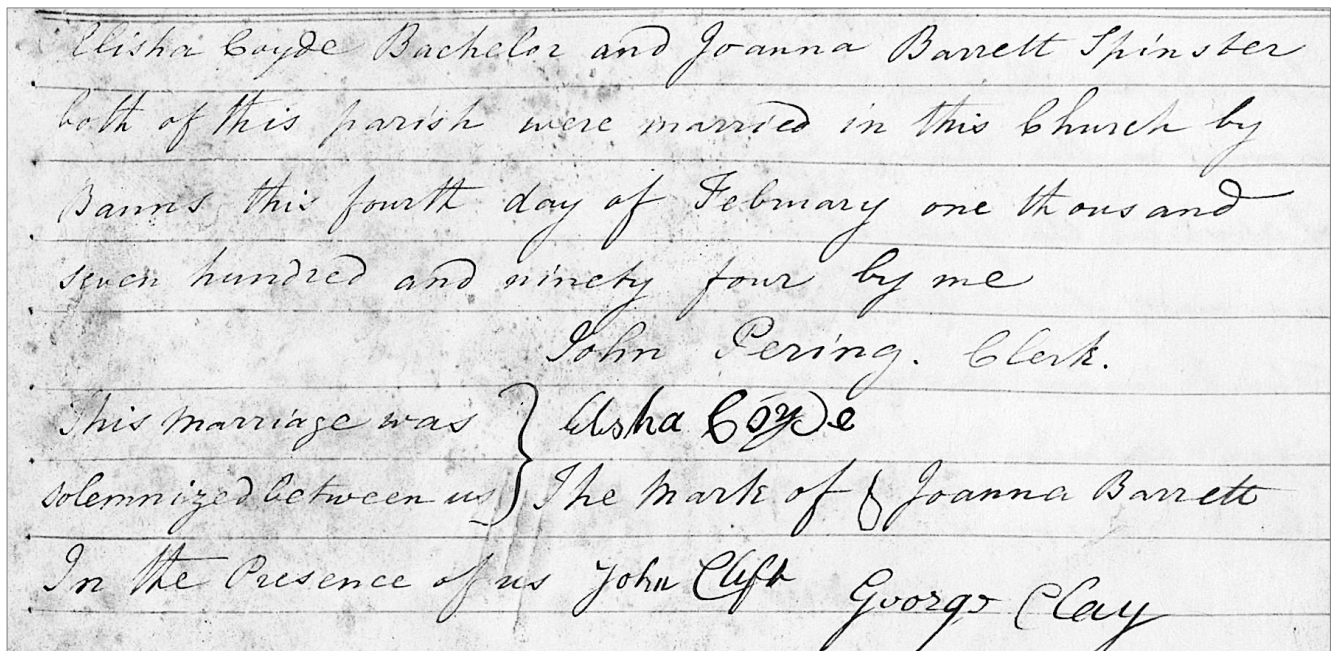 Elisha Coyde Bachelor and Joanna Barrett Spinster
both of this parish were married in this Church by
Banns this fourth day of February one thousand
seven hundred and ninety four by me
John Pering. Clerk.
This Marriage was } Elisha Coyde
solemnized between us } The Mark of Joanna Barrett
In the Presence of us John Clift George Clay